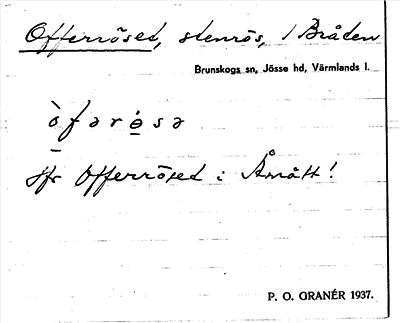 Offerröset, stenrös, i Bråten
Brunskogs sn, Jösse hd, Värmlands l.
ò̱fərø̱̀sə
Jfr Offerröset i Åmått!
P. O. GRANÉR 1937.